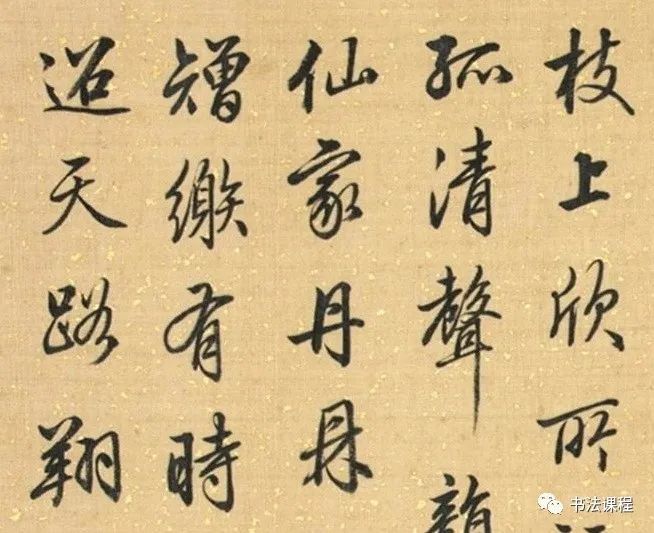 枝上欣所
孤清聲韻
仙家丹
矰繳有時
迢天路翔
书法课程